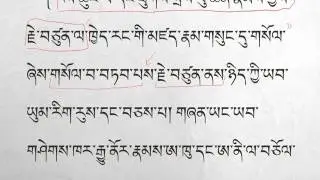 རྗེ་བཙུན་ལ་ཁྱེད་རང་གི་མཛད་རྣམ་གསུང་དུ་གསོལ་
ཞེས་གསོལ་བ་བཏབ་པས་རྗེ་བཙུན་ནས་ཉིད་ཀྱི་ཡབ་
ཡུམ་རིག་རུས་དང་བཅས་པ། གཞན་ཡང་ཡབ་
གཤེགས་ཁར་རྒྱུ་ནོར་རྣམས་ཨ་ཁུ་དང་ཨ་ནི་ལ་བཅོལ་